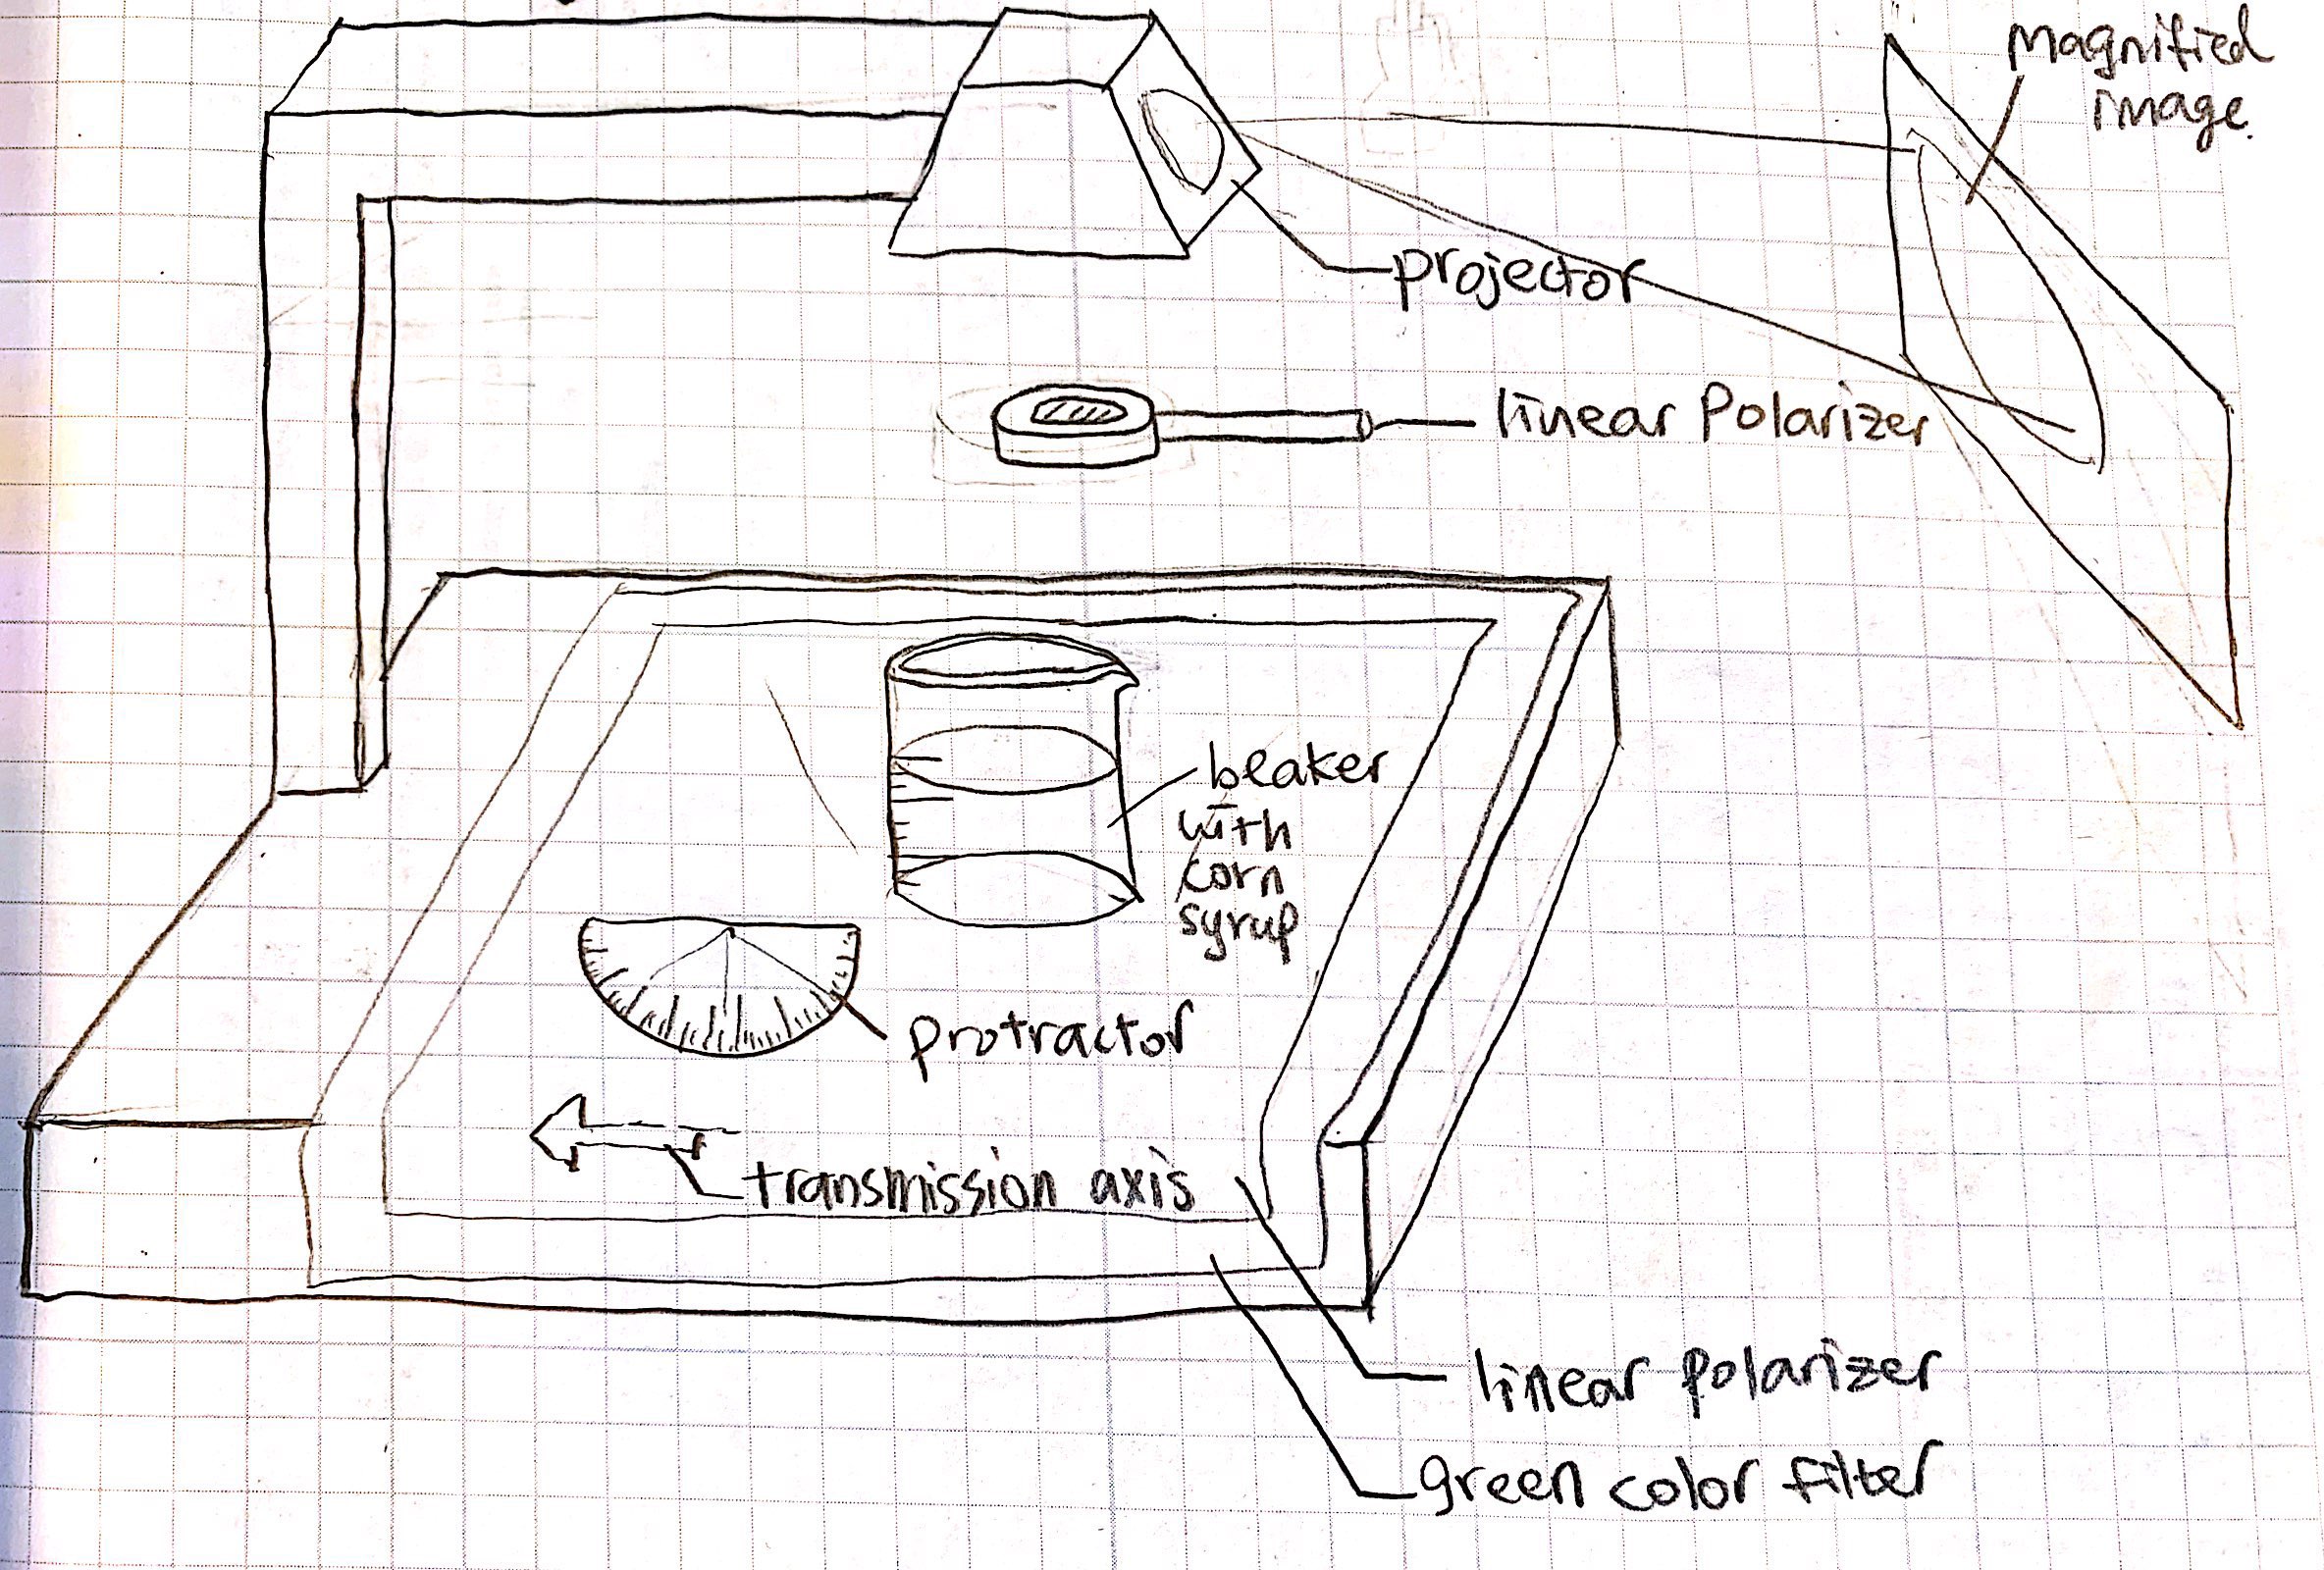 magnified
image.
projector
linear Polarizer
beaker
with
corn
syrup
protractor
transmission axis
linear polarizer
green color filter